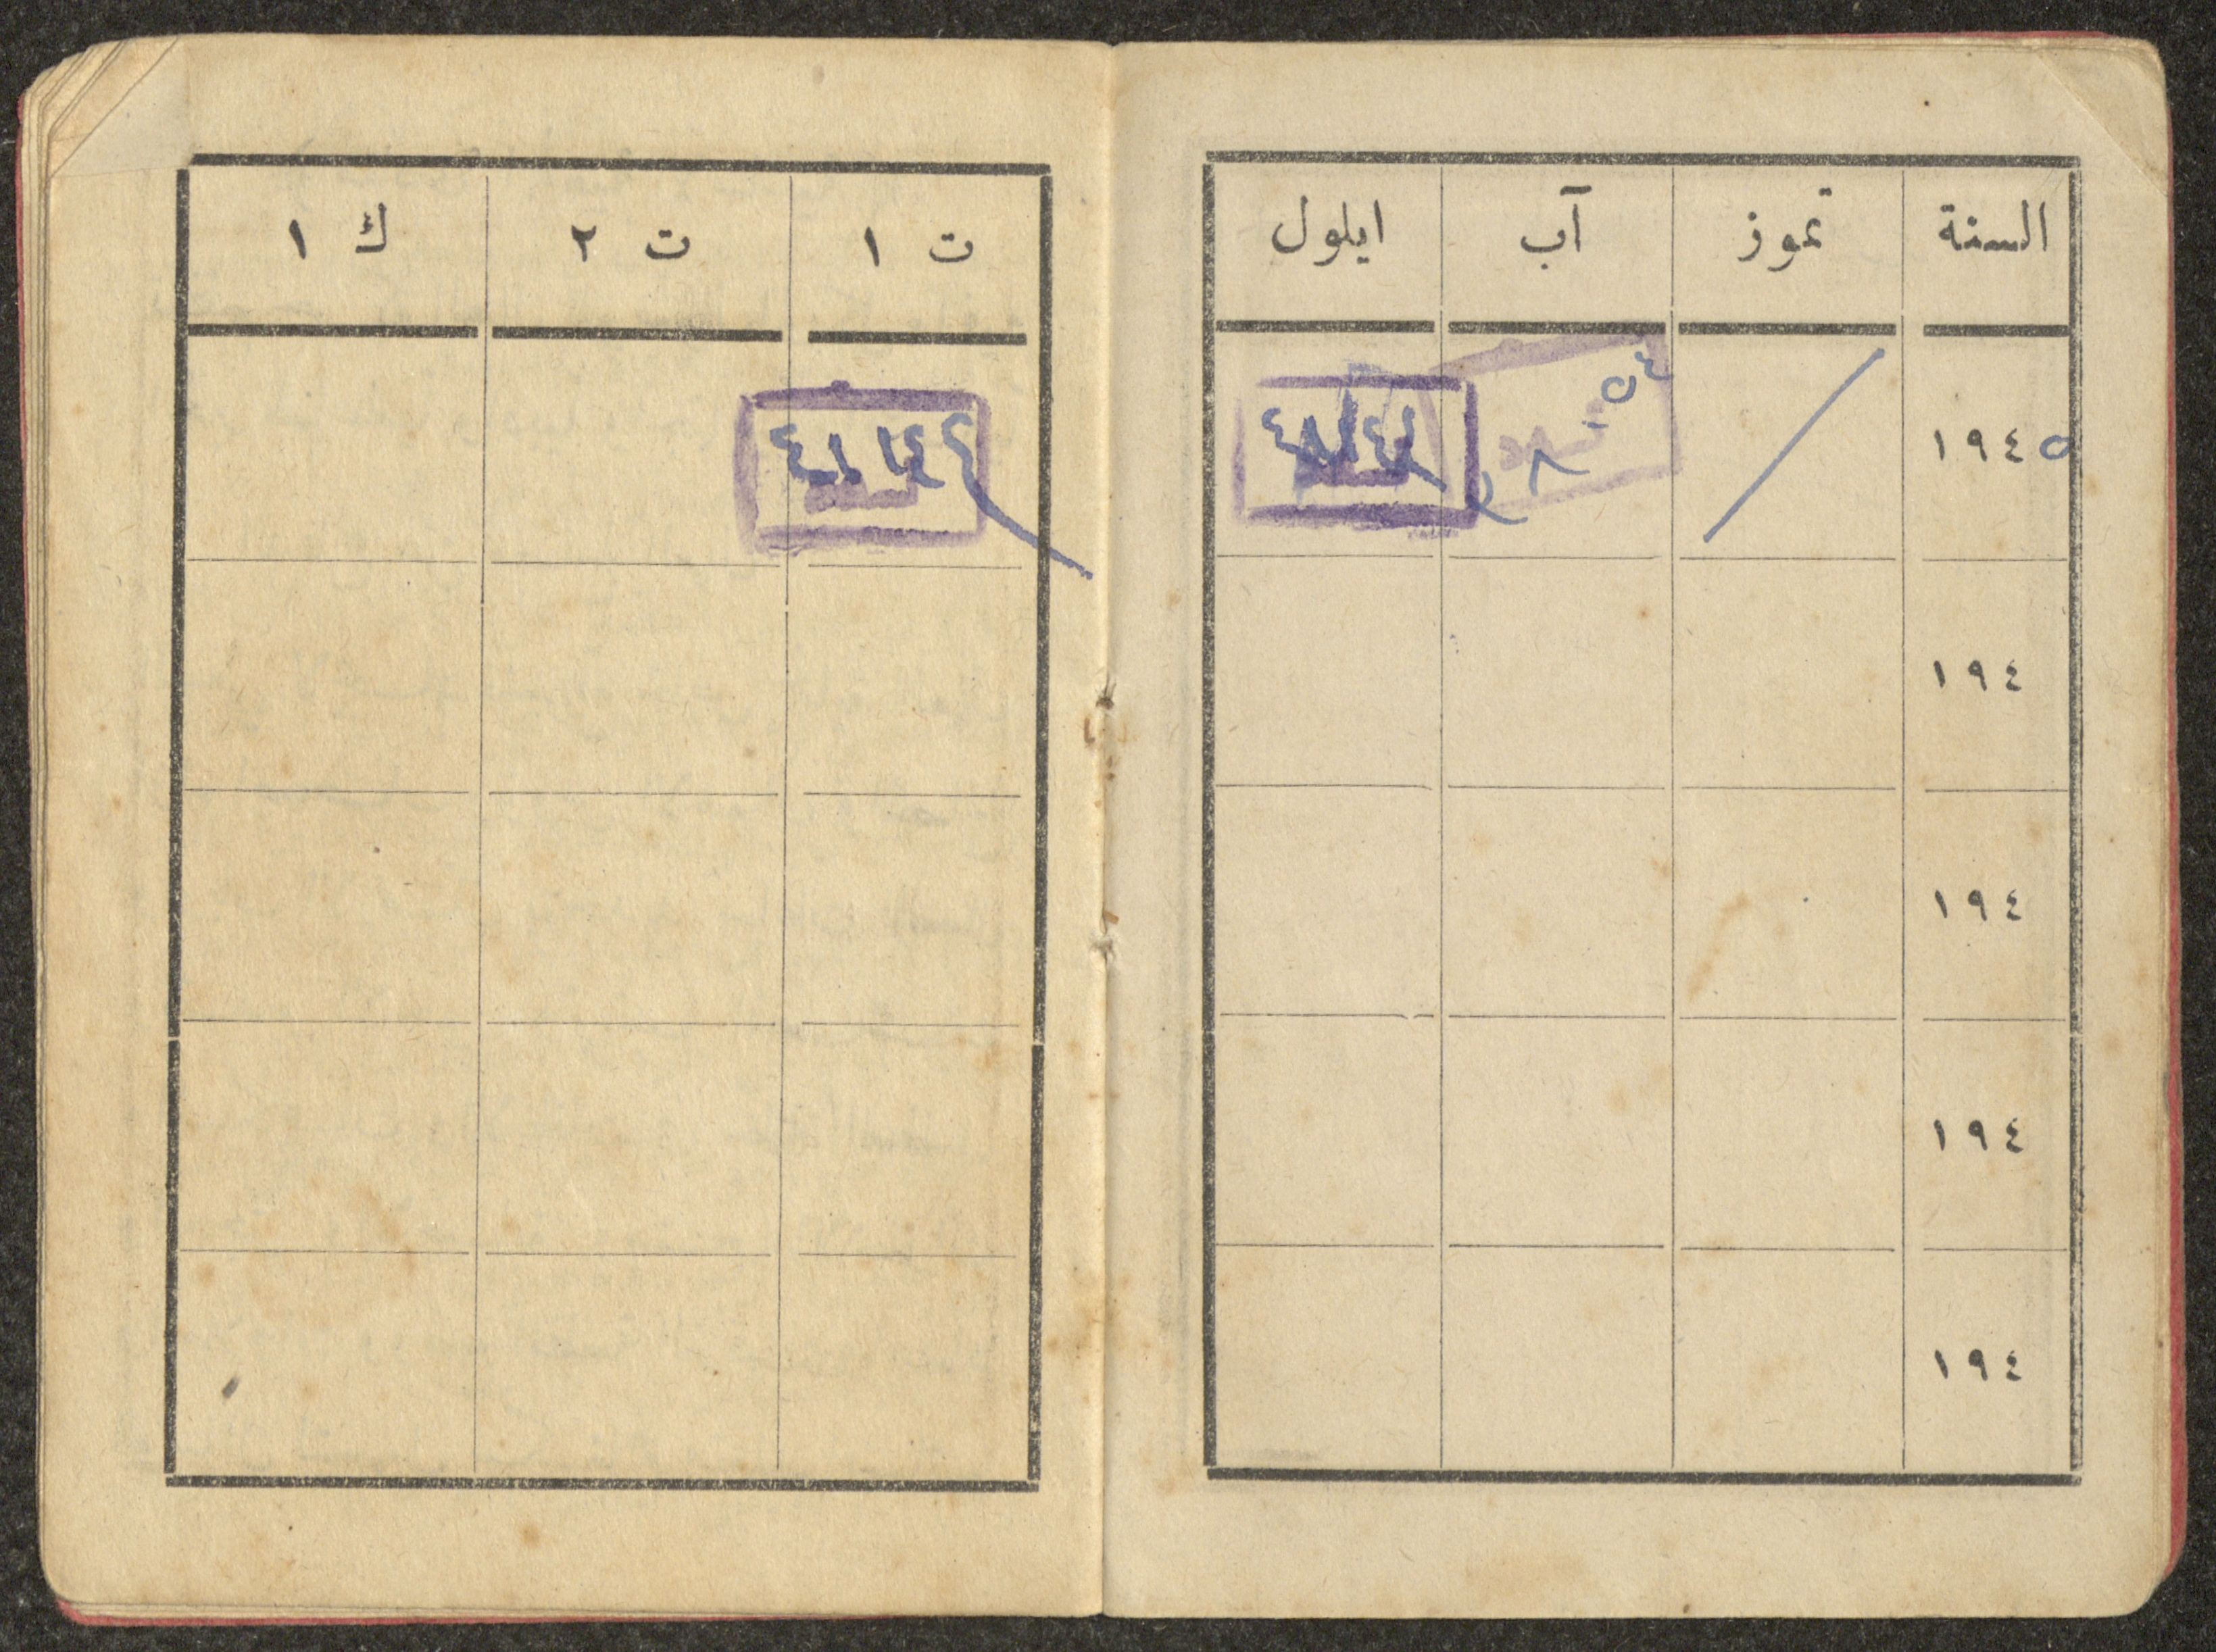 السنة تموز آب ايلول
١٩٤٥
١٩٤
١٩٤
١٩٤
١٩٤
ت ١ ت ٢ ك ١